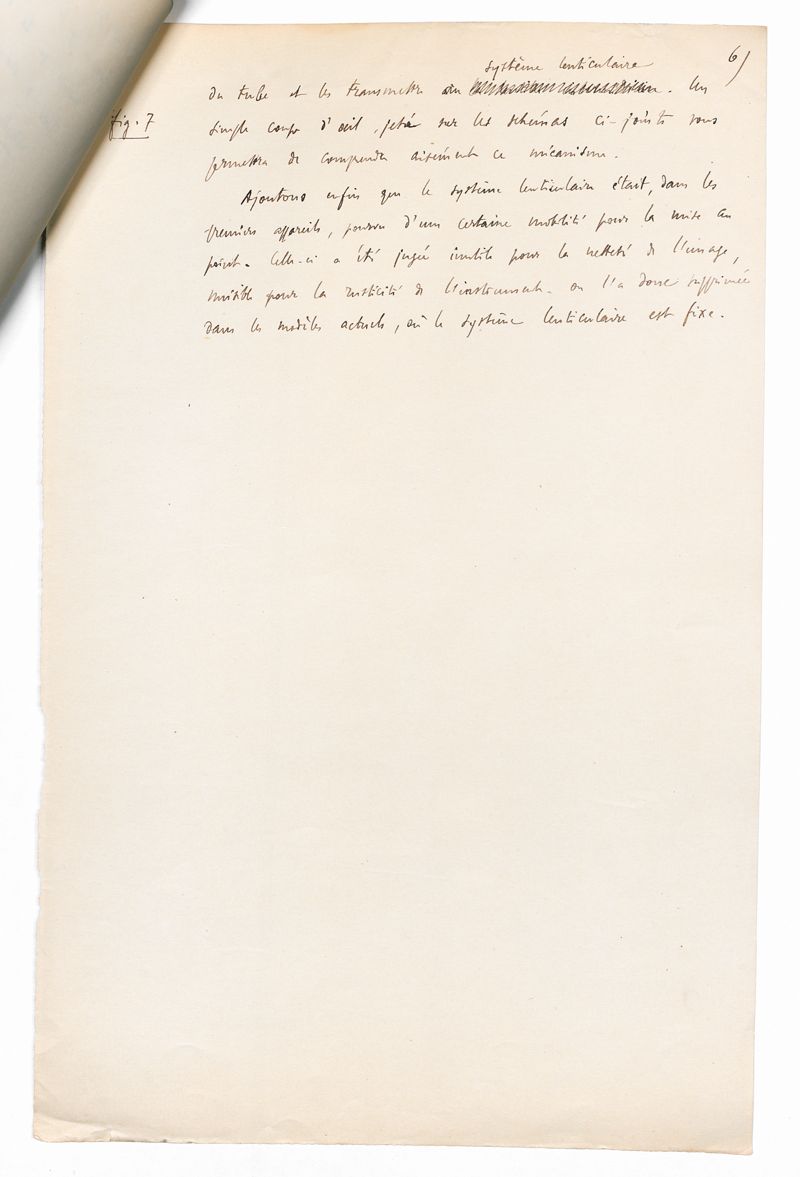 6)
système lenticulaire
du tube et les transmettra au. Un
fig. 7
simple coup d'œil, jeté sur les schémas ci-joints vous
permettra de comprendre aisément ce mécanisme.
Ajoutons enfin que le système lenticulaire était, dans les
premiers appareils, pourvu d'une certaine mobilité pour la mise au
point. Celle-ci a été jugée inutile pour la netteté de l'image,
nuisible pour la rusticité de l'instrument. on l'a donc supprimée
dans les modèles actuels, où le système lenticulaire est fixe.